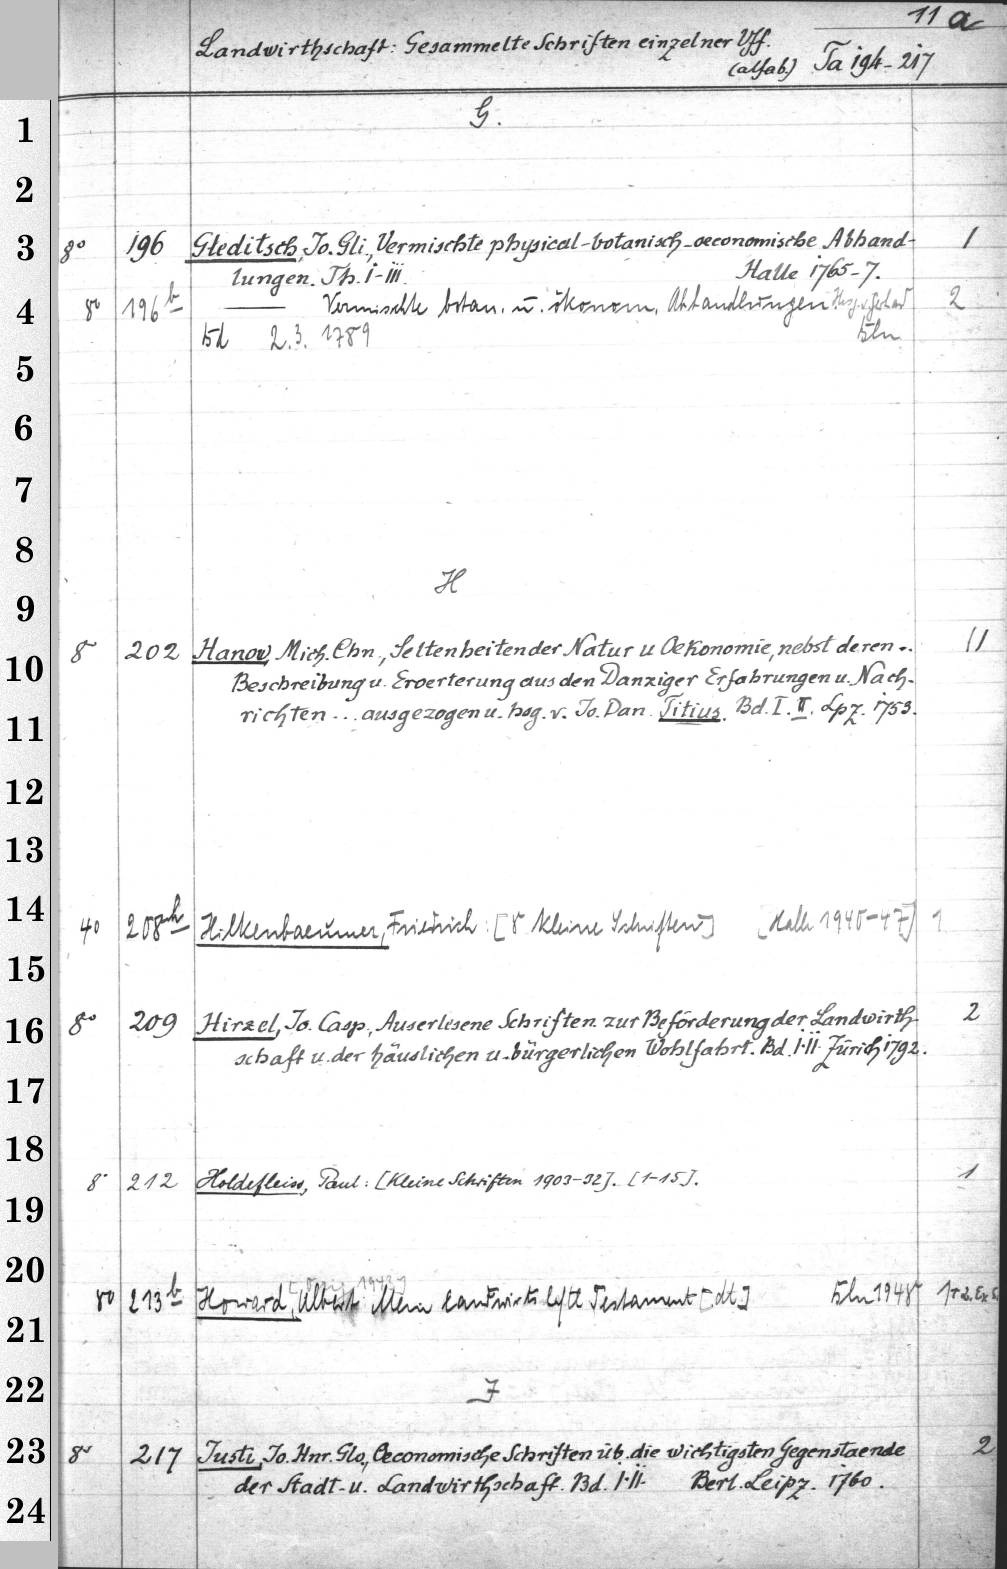 11 a
Landwirthschaft: Gesammelte Schriften einzelner Vff.
(alfab.) Ta 194-217
G.
8° 196 Gleditsch, Jo. Gli., Vermischte physical-botanisch-oeconomische Abhand- 1
lungen. Th. I-III. Halle 1765-7.
8° 196b ——— Vermischte botan. u. ökonom. Abhandlungen. Hrsg. v. 2
Bd 2.3. 1789 Bln
H
8° 202 Hanow, Mich. Chn., Seltenheiten der Natur u Oekonomie, nebst deren .. 11
Beschreibung u. Eroerterung aus den Danziger Erfahrungen u. Nach-
richten ... ausgezogen u. hsg. v. Jo. Dan. Titius. Bd. I. II. Lpz. 1753.
4° 208 Hilkenbaeumer, Friedrich: [8 kleine Schriften] [Halle 1940-47] 1
8° 209 Hirzel, Jo. Casp., Auserlesene Schriften zur Beförderung der Landwirth- 2
schaft u. der häuslichen u. bürgerlichen Wohlfahrt. Bd. I-II. Zürich 1792.
8° 212 Holdefleiss, Paul: [Kleine Schriften 1903-32]. [1-15]. 1
[Orig. 1943]
8° 213b Howard, Albert: Mein landwirtschftl Testament [dt] Bln 1948 1+2. Ex.
J
8° 217 Justi, Jo. Hnr. Glo., Oeconomische Schriften üb. die wichtigsten Gegenstaende 2
der Stadt- u. Landwirthschaft. Bd. I-II. Berl. Leipz. 1760.
1
2
3
4
5
6
7
8
9
10
11
12
13
14
15
16
17
18
19
20
21
22
23
24